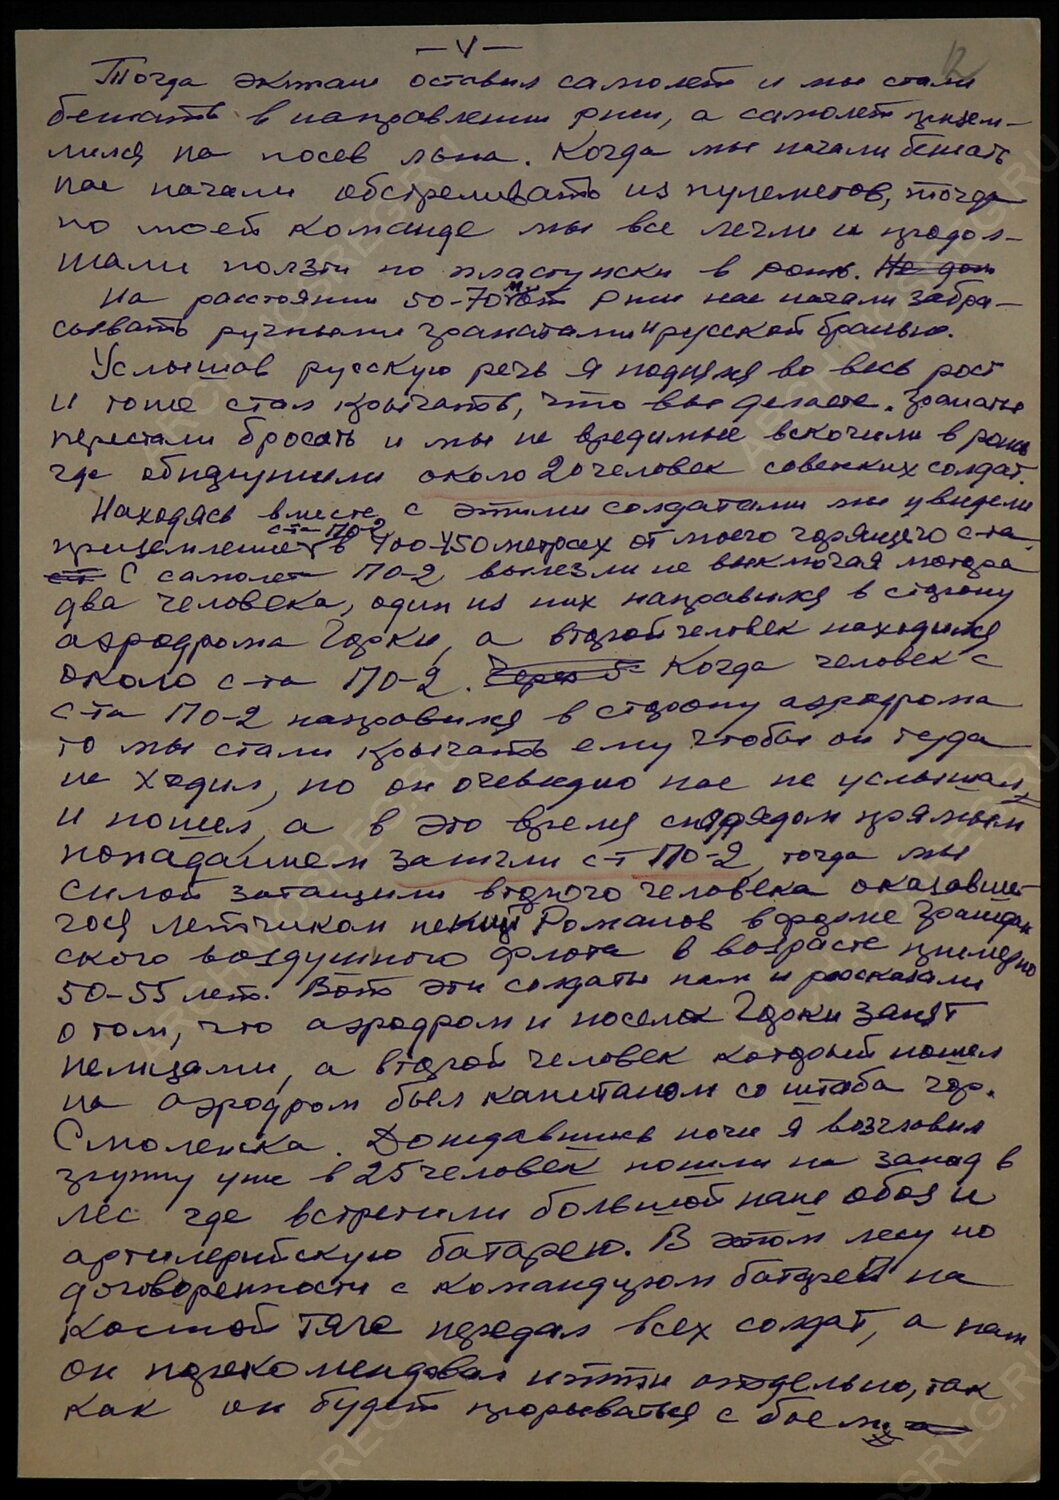 — V —
12
Тогда экипаж оставил самолет и мы стали
бежать в направлении ржи, а самолет призем-
лился на посев льна. Когда мы начали бежать
нас начали обстреливать из пулеметов, тогда
по моей команде мы все легли и продол-
жали ползти по пластунски в рожь. Не дой
На расстоянии 50-70 мт от ржи нас начали забра-
сывать ручными гранатами и русской бранью.
Услышав русскую речь я поднялся во весь рост
и тоже стал кричать, что вы делаете. Гранаты
перестали бросать и мы не вредимые вскочили в рожь
где обнаружили около 20 человек советских солдат.
Находясь вместе с этими солдатами мы увидели
приземление с-та ПО-2 в 400-450 метрах от моего горящего с-та.
С самолета ПО-2 вылезли не выключая мотора
два человека, один из них направился в сторону
аэродрома Горки, а второй человек находился
около с-та ПО-2. Через 5 Когда человек с
с-та ПО-2 направился в сторону аэродрома
то мы стали кричать ему чтобы он туда
не ходил, но он очевидно нас не услышал
и пошел, а в это время снарядом прямым
попаданием зажгли с-т ПО-2, тогда мы
силой затащили второго человека оказавше-
гося летчиком некий Романов в форме граждан
ского воздушного флота в возрасте примерно
50-55 лет. Вот эти солдаты нам и рассказали
о том, что аэродром и поселок Горки занят
немцами, а второй человек который пошел
на аэродром был капитаном со штаба гор.
Смоленска. Дождавшись ночи я возглавил
группу уже в 25 человек пошли на запад в
лес где встретили большой наш обоз и
артилерийскую батарею. В этом лесу по
договоренности с командиром батареи на
конной тяге передал всех солдат, а нам
он порекомендовал итти отдельно, так
как он будет прорываться с боем